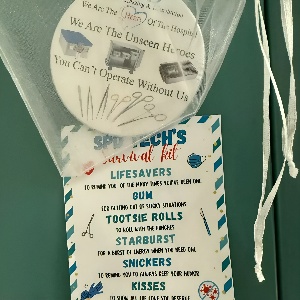 We Are The Heart Of The Hospital
We Are The Unseen Heroes
You Can't Operate Without Us
SPD TECH'S
Survival kit
LIFESAVERS
TO REMIND YOU OF THE MANY TIMES YOU'VE BEEN ONE
GUM
FOR GETTING OUT OF STICKY SITUATIONS
TOOTSIE ROLLS
TO ROLL WITH THE PUNCHES
STARBURST
FOR A BURST OF ENERGY WHEN YOU NEED ONE
SNICKERS
TO REMIND YOU TO ALWAYS KEEP YOUR HUMOR
KISSES
TO SHOW YOU THE LOVE YOU DESERVE